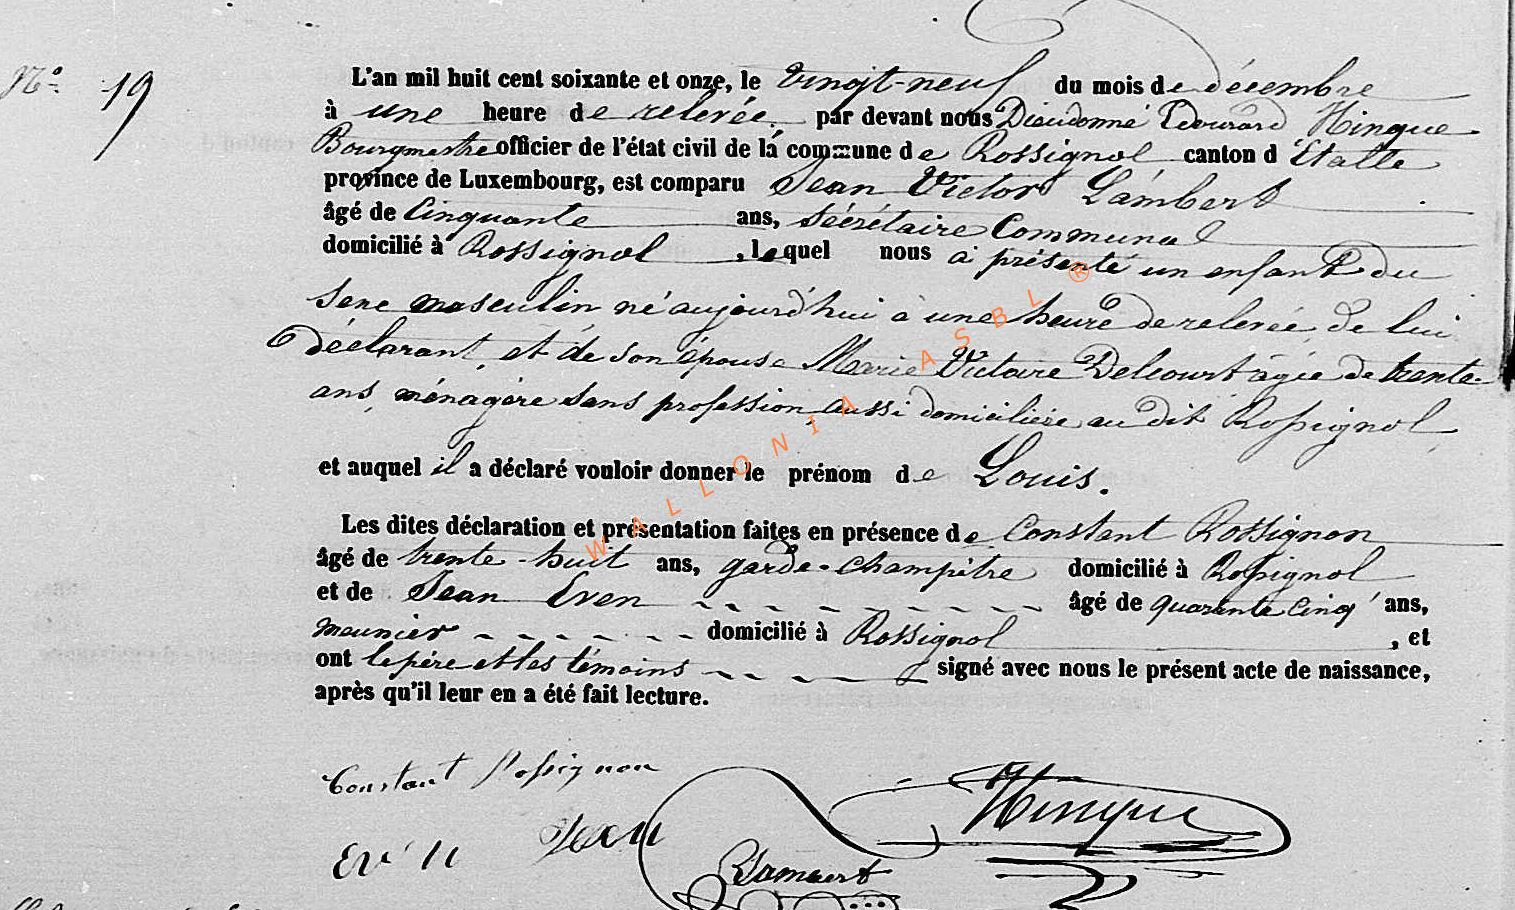 N° 19
L'an mil huit cent soixante et onze, le vingt-neuf du mois de décembre
à une heure de relevée, par devant nous Dieudonné Edouard Hinque
Bourgmestre officier de l'état civil de la commune de Rossignol canton d'Etalle
province de Luxembourg, est comparu Jean Victor Lambert
âgé de Cinquante ans, Sécrétaire Communal
domicilié à Rossignol, lequel nous a présenté un enfant du
sexe masculin né aujourd'hui à une heure de relevée, de lui
déclarant, et de son épouse Marie Victoire Delcourt âgée de trente
ans, ménagère sans profession, aussi domiciliée au dit Rossignol
et auquel il a déclaré vouloir donner le prénom de Louis.
Les dites déclaration et présentation faites en présence de Constant Rossignon
âgé de trente-huit ans, garde-champêtre domicilié à Rossignol
et de Jean Even âgé de quarante cinq ans,
meunier domicilié à Rossignol, et
ont le père et les témoins signé avec nous le présent acte de naissance,
après qu'il leur en a été fait lecture.
Constant Rossignon
Hinque
Even Jean
Lambert
WALLONIA ASBL ®